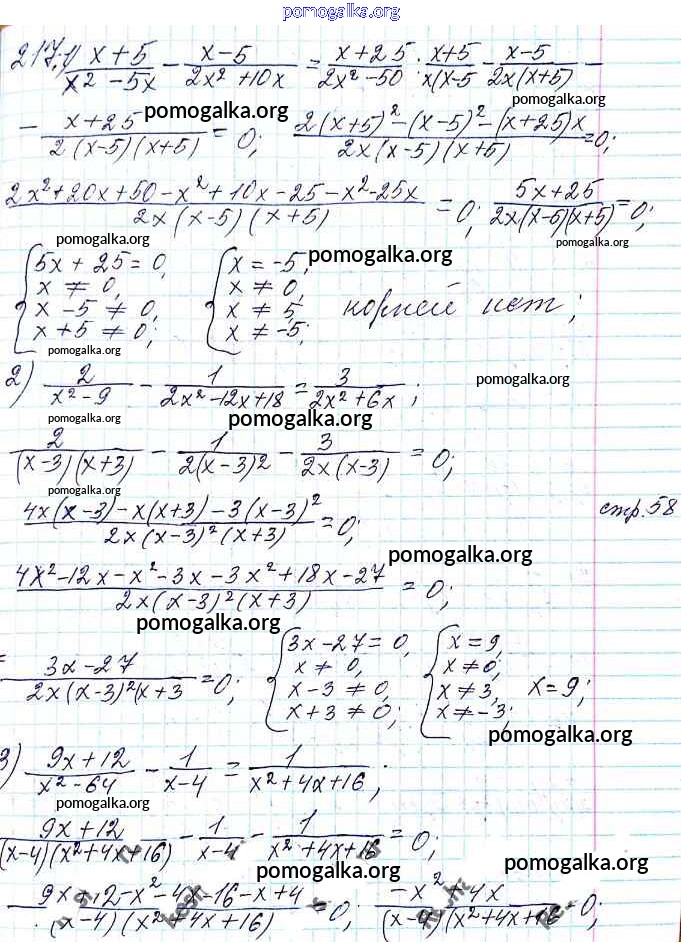 pomogalka.org
217. 1) (x+5)/(x² - 5x) - (x-5)/(2x² +10x) = (x+25)/(2x² -50) ; (x+5)/(x(x-5) - (x-5)/(2x(x+5)) -
pomogalka.org
pomogalka.org
- (x+25)/(2(x-5)(x+5)) = 0; (2(x+5)² -(x-5)² -(x+25)x)/(2x(x-5)(x+5)) =0;
pomogalka.org
(2x²+20x+50-x²+10x-25-x²-25x)/(2x(x-5)(x+5)) = 0; (5x+25)/(2x(x-5)(x+5)) =0;
pomogalka.org pomogalka.org
pomogalka.org
{5x + 25 = 0, {x = -5,
x ≠ 0, x ≠ 0,
x - 5 ≠ 0, x ≠ 5, корней нет;
x + 5 ≠ 0; x ≠ -5;
pomogalka.org
2) 2/(x² - 9) - 1/(2x² -12x+18) = 3/(2x² +6x) ;
pomogalka.org
pomogalka.org
pomogalka.org
2/((x-3)(x+3)) - 1/(2(x-3)²) - 3/(2x(x-3)) = 0;
pomogalka.org
(4x(x-3)-x(x+3)-3(x-3)²)/(2x(x-3)²(x+3)) =0; стр. 58
pomogalka.org
(4x²-12x-x²-3x-3x²+18x-27)/(2x(x-3)²(x+3)) = 0;
pomogalka.org
= (3x-27)/(2x(x-3)²(x+3) =0; {3x-27= 0, {x=9,
x ≠ 0, x≠0,
x-3 ≠ 0, x≠3, x=9;
x+3 ≠ 0; x≠-3;
pomogalka.org
3) (9x+12)/(x² -64) - 1/(x-4) = 1/(x²+4x+16) ;
pomogalka.org
(9x+12)/((x-4)(x²+4x+16)) - 1/(x-4) - 1/(x²+4x+16) = 0;
pomogalka.org
pomogalka.org
(9x+12-x²-4x-16-x+4)/((x-4)(x²+4x+16)) =0; (-x²+4x)/((x-4)(x²+4x+16 =0;